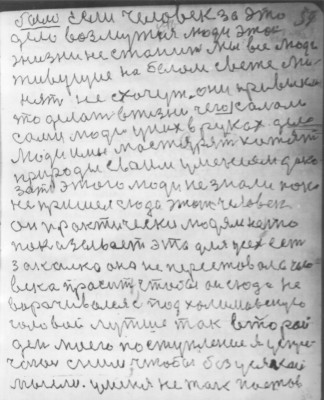 было если человек за это 59
дело возмутся люди этой
жизни не станит мы все люди
живущие на белом свете ме
нят не схочут они привыкли
то делат в тизни чего сдалал
сами люди у них в руках дело
люди имы мастерят хотят
природы своим умением дока
зат этого люди не знали пока
не пришел сюда этот человек
он практически людям
показывает это для всех ест
закалка она не перестовала чело
века просит чтобы он сюда не
ворачивался под холомовскую
головой лутше так второй
ден моего поступление я
с ним чтобы без усякой
мысли. у меня не так